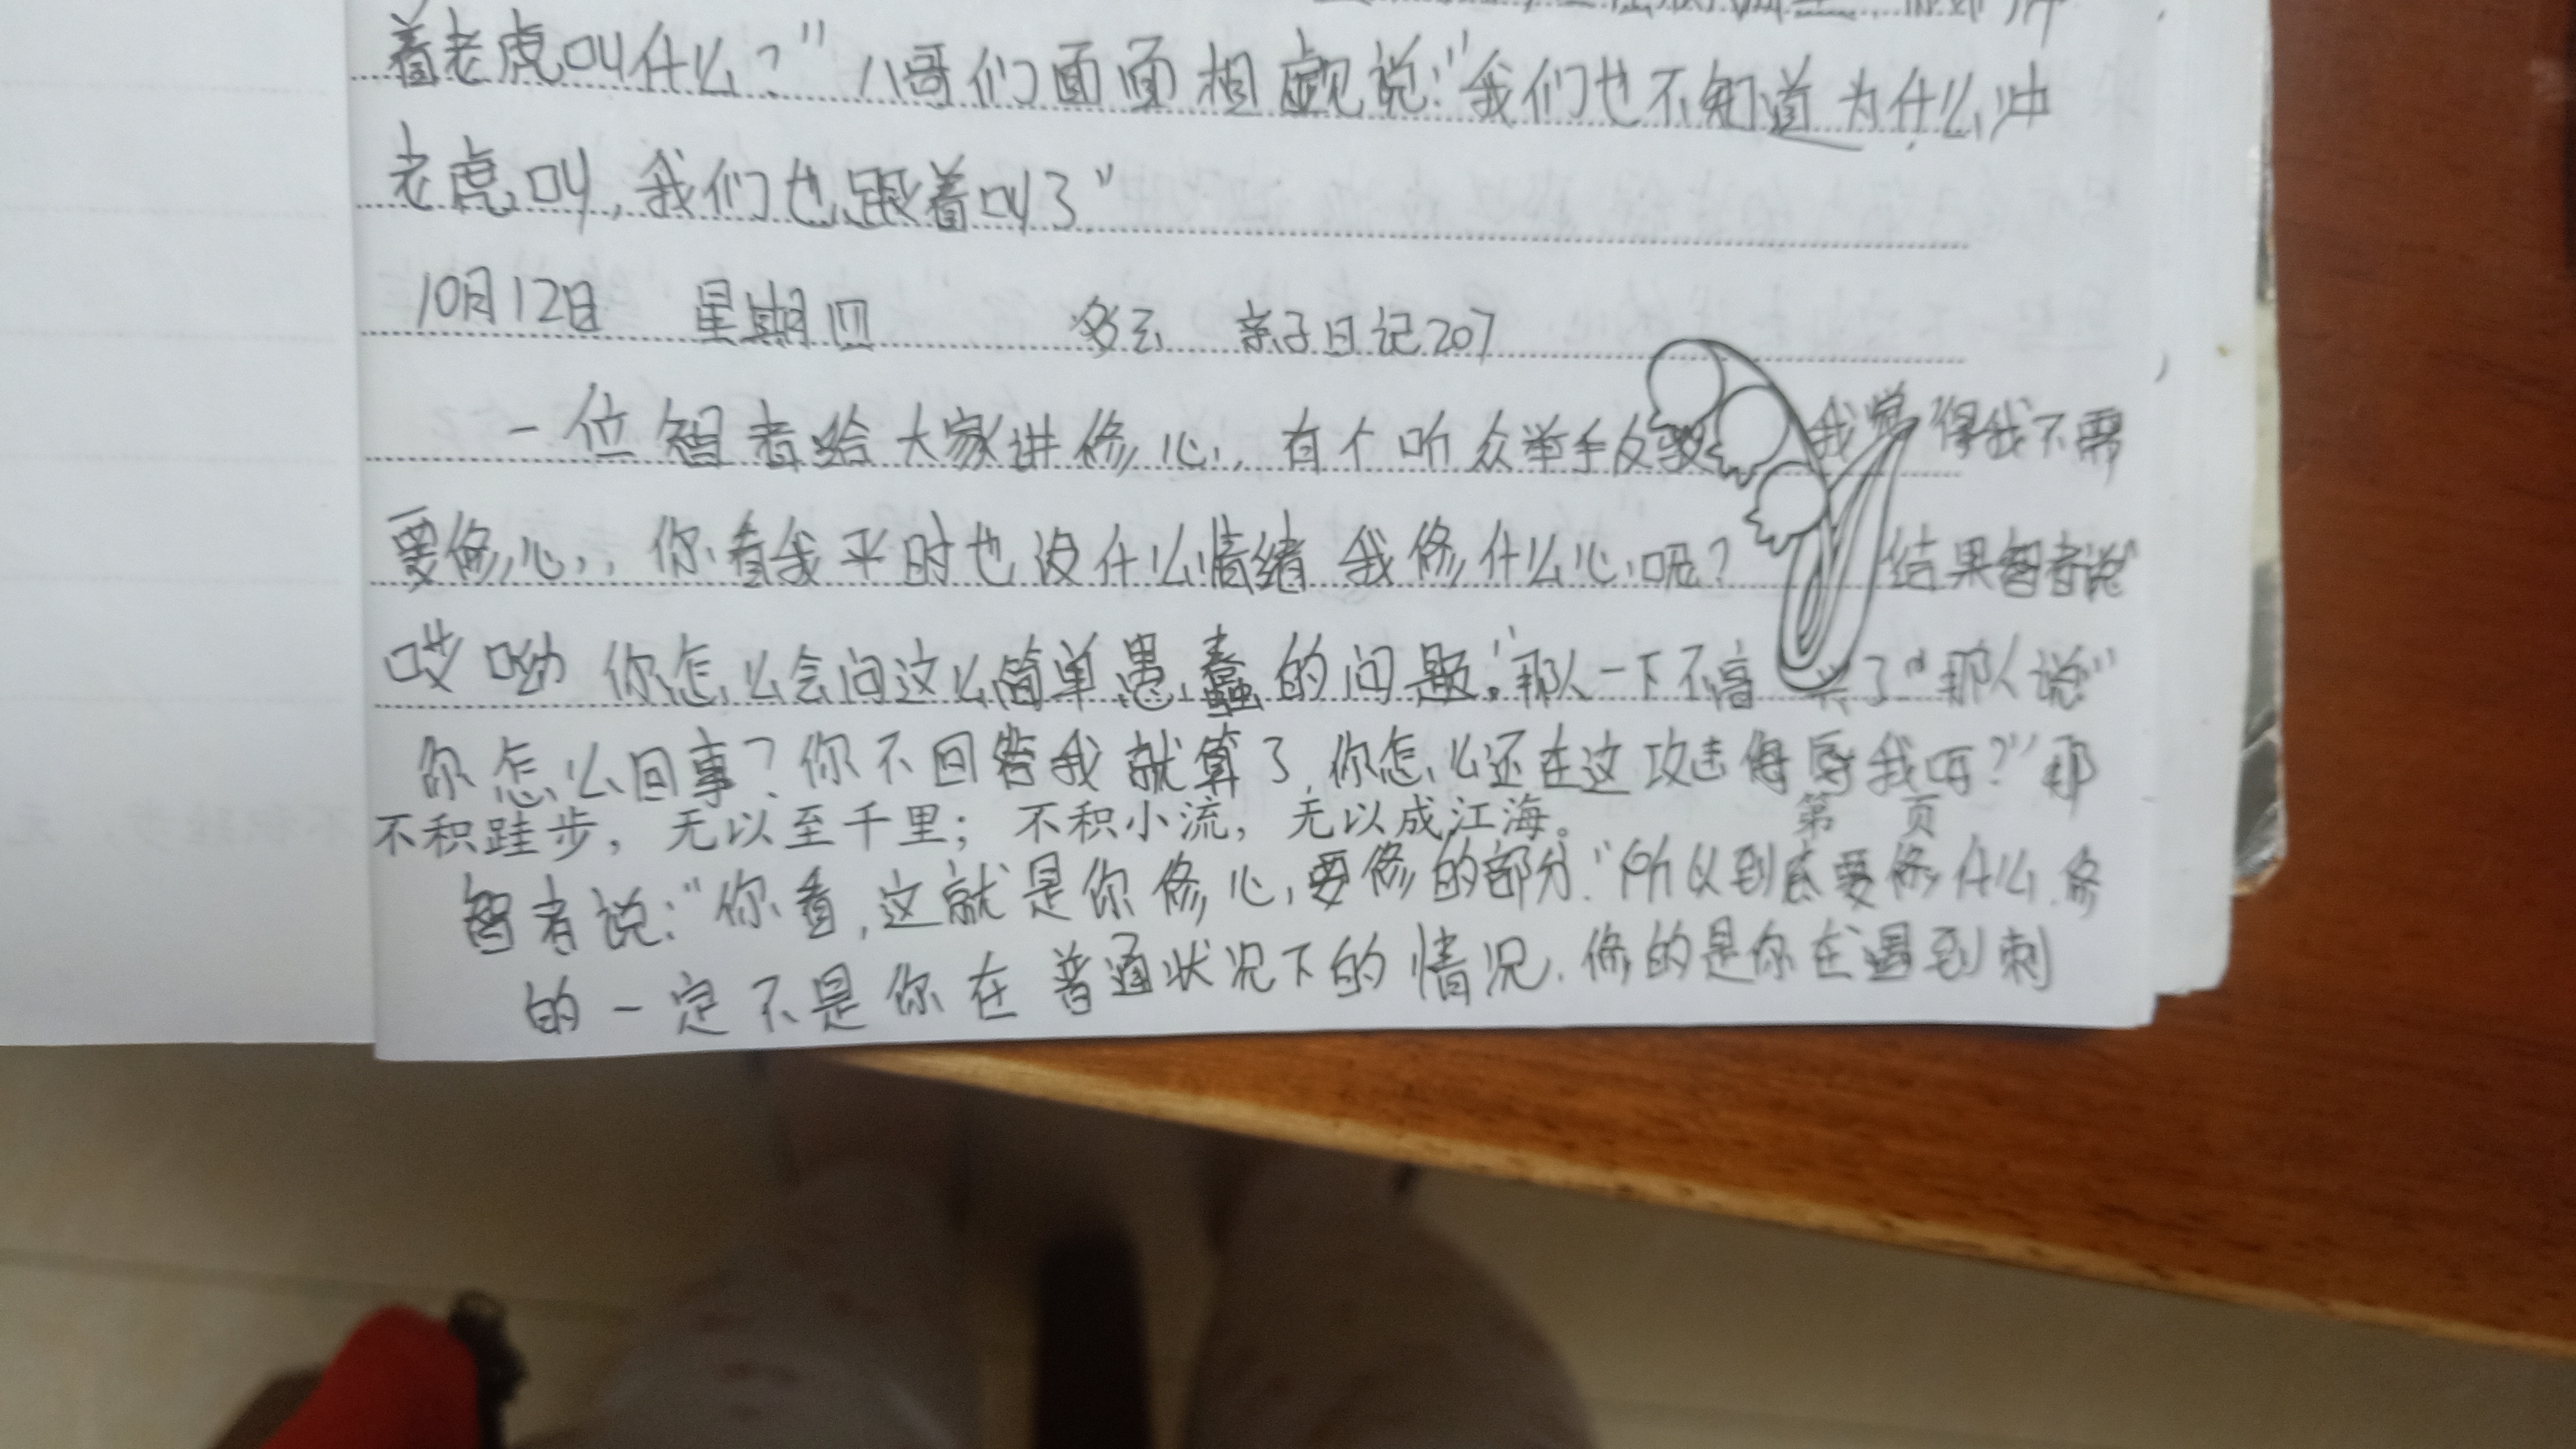 着老虎叫什么？”八哥们面面相觑说：“我们也不知道为什么冲
老虎叫，我们也跟着叫了”
10月12日 星期四 多云 亲子日记207
一位智者给大家讲修心，有个听众举手反驳 我觉得我不需
要修心，你看我平时也没什么情绪 我修什么心呢？ 结果智者说“
哎呦 你怎么会问这么简单愚蠢的问题”那人一下不高兴了“那人说”
你怎么回事？你不回答我就算了，你怎么还在这攻击侮辱我呀？”那
不积跬步，无以至千里；不积小流，无以成江海。 第 页
智者说：“你看，这就是你修心，要修的部分.”所以到底要修什么.修
的一定不是你在普通状况下的情况.修的是你在遇到刺